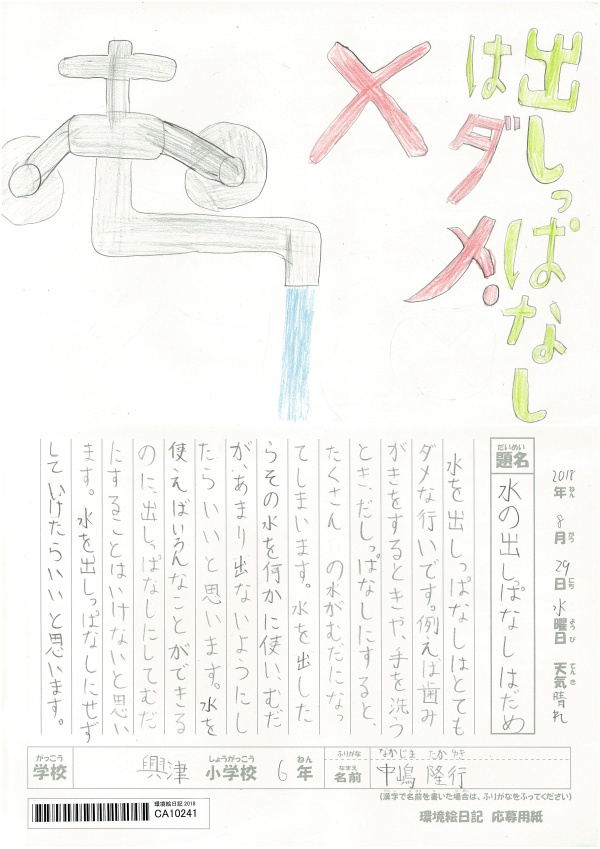 出しっぱなし
はダメ.
2018年ねん 8月がつ 29日にち 水曜日ようび 天気てんき 晴れ
題名だいめい
水の出しっぱなしはだめ
水を出しっぱなしはとても
ダメな行いです。例えば歯み
がきをするときや、手を洗う
とき、だしっぱなしにすると、
たくさん の水がむだになっ
てしまいます。水を出した
らその水を何かに使い、むだ
が、あまり出ないようにし
たらいいと思います。水を
使えばいろんなことができる
のに、出しっぱなしにしてむだ
にすることはいけないと思い
ます。水を出しっぱなしにせず
していけたらいいと思います。
がっこう しょうがっこう ねん ふりがな なかじま たかゆき
学校 興津 小学校 6 年 なまえ 名前 中嶋 隆行
(漢字で名前を書いた場合は、ふりがなをふってください)
環境絵日記 応募用紙
環境絵日記 2018
CA10241